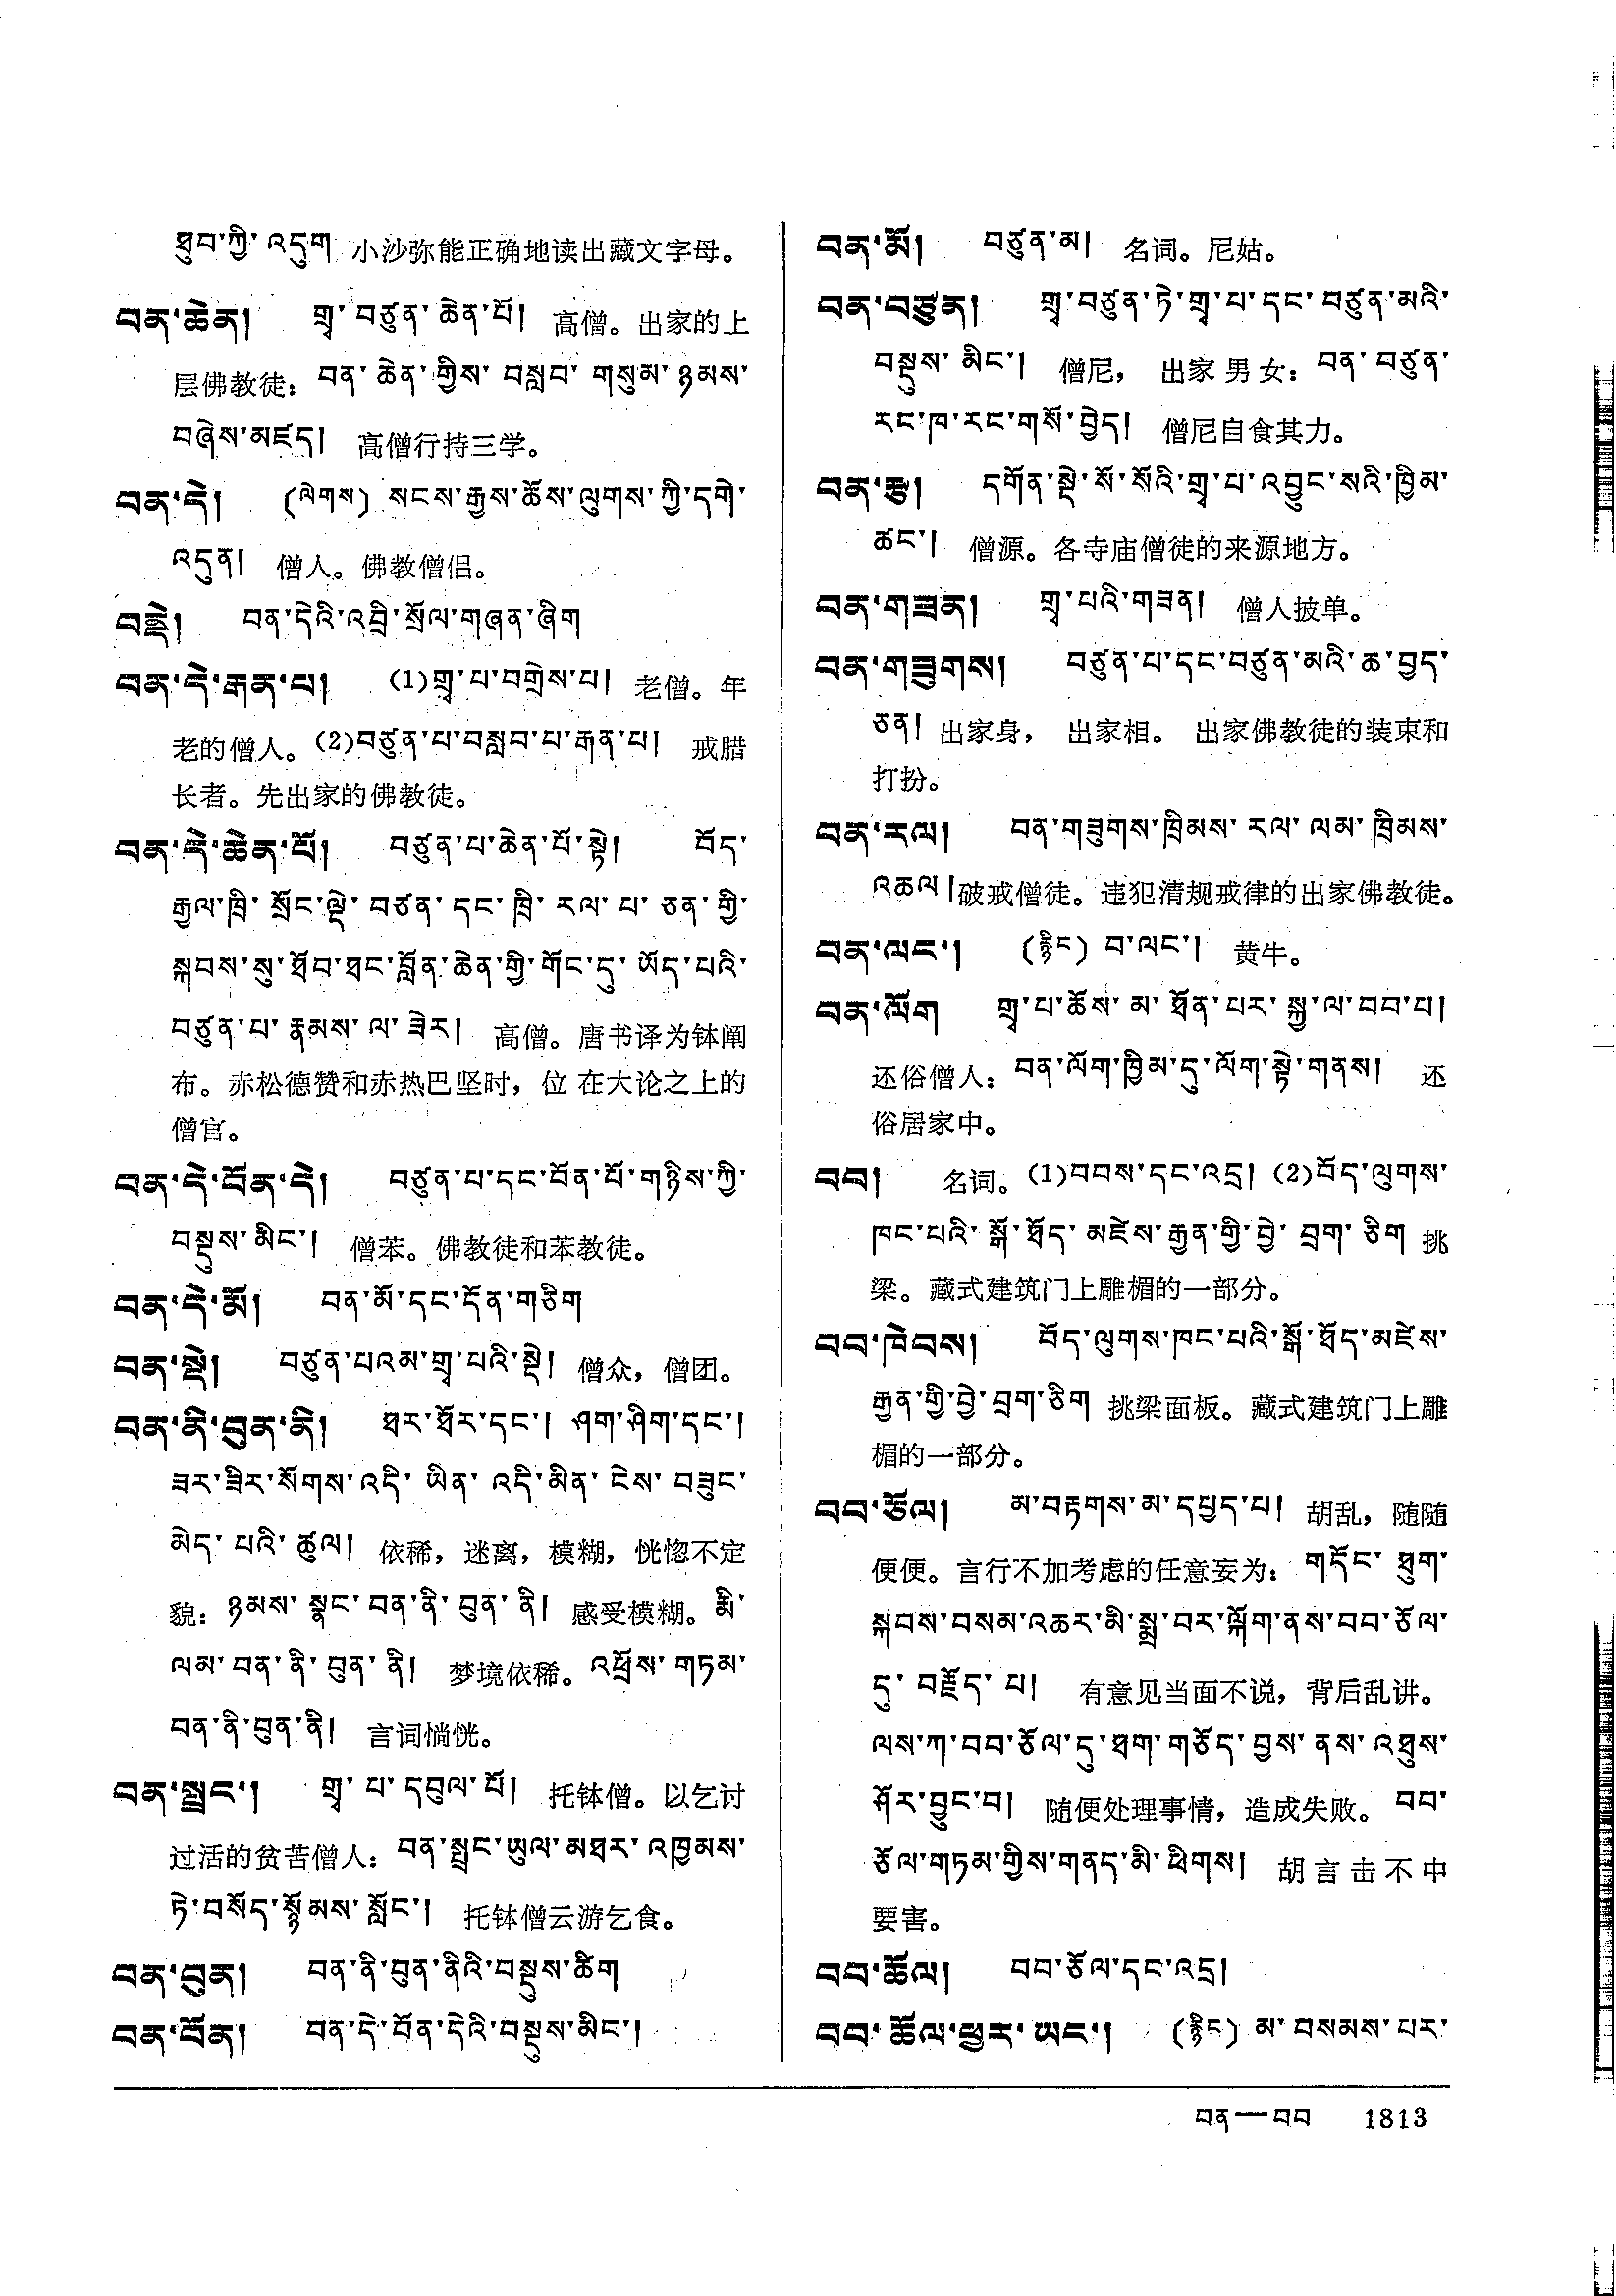 ཐུབ་ཀྱི་འདུག 小沙弥能正确地读出藏文字母。
བན་ཆེན། གྲྭ་བཙུན་ཆེན་པོ། 高僧。出家的上
层佛教徒：བན་ཆེན་གྱིས་བསླབ་གསུམ་ཉམས་
བཞེས་མཛད། 高僧行持三学。
བན་དེ། (ལེགས) སངས་རྒྱས་ཆོས་ལུགས་ཀྱི་དགེ་
འདུན། 僧人。佛教僧侣。
བནྡེ། བན་དེའི་འབྲི་སྲོལ་གཞན་ཞིག
བན་དེ་རྒན་པ། (1)གྲྭ་པ་བགྲེས་པ། 老僧。年
老的僧人。(2)བཙུན་པ་བསླབ་པ་རྒན་པ། 戒腊
长者。先出家的佛教徒。
བན་དེ་ཆེན་པོ། བཙུན་པ་ཆེན་པོ་སྟེ། བོད་
རྒྱལ་ཁྲི་སྲོང་ལྡེ་བཙན་དང་ཁྲི་རལ་པ་ཅན་གྱི་
སྐབས་སུ་ཐོབ་ཐང་བློན་ཆེན་གྱི་གོང་དུ་ཡོད་པའི་
བཙུན་པ་རྣམས་ལ་ཟེར། 高僧。唐书译为钵阐
布。赤松德赞和赤热巴坚时，位在大论之上的
僧官。
བན་དེ་བོན་དེ། བཙུན་པ་དང་བོན་པོ་གཉིས་ཀྱི་
བསྡུས་མིང་། 僧苯。佛教徒和苯教徒。
བན་དེ་མོ། བན་མོ་དང་དོན་གཅིག
བན་སྡེ། བཙུན་པའམ་གྲྭ་པའི་སྡེ། 僧众，僧团。
བན་ནེ་བུན་ནེ། ཐར་ཐོར་དང་། ཤག་ཤིག་དང་།
ཟར་ཟིར་སོགས་འདི་ཡིན་འདི་མིན་ངེས་བཟུང་
མེད་པའི་ཚུལ། 依稀，迷离，模糊，恍惚不定
貌：ཉམས་སྣང་བན་ནི་བུན་ནི། 感受模糊。རྨི་
ལམ་བན་ནི་བུན་ནི། 梦境依稀。འཕྲོས་གཏམ་
བན་ནི་བུན་ནི། 言词惝恍。
བན་སྤྲང་། གྲྭ་པ་དབུལ་པོ། 托钵僧。以乞讨
过活的贫苦僧人：བན་སྤྲང་ཡུལ་མཐར་འཁྱམས་
ཏེ་བསོད་སྙོམས་སློང་། 托钵僧云游乞食。
བན་བུན། བན་ནི་བུན་ནིའི་བསྡུས་ཚིག
བན་བོན། བན་དེ་བོན་དེའི་བསྡུས་མིང་།
བན་མོ། བཙུན་མ། 名词。尼姑。
བན་བཙུན། གྲྭ་བཙུན་ཏེ་གྲྭ་པ་དང་བཙུན་མའི་
བསྡུས་མིང་། 僧尼，出家男女：བན་བཙུན་
རང་ཁ་རང་གསོ་བྱེད། 僧尼自食其力。
བན་རྩ། དགོན་སྡེ་སོ་སོའི་གྲྭ་པ་འབྱུང་སའི་ཁྱིམ་
ཚང་། 僧源。各寺庙僧徒的来源地方。
བན་གཟན། གྲྭ་པའི་གཟན། 僧人披单。
བན་གཟུགས། བཙུན་པ་དང་བཙུན་མའི་ཆ་བྱད་
ཅན། 出家身，出家相。出家佛教徒的装束和
打扮。
བན་རལ། བན་གཟུགས་ཁྲིམས་རལ་ལམ་ཁྲིམས་
འཆལ། 破戒僧徒。违犯清规戒律的出家佛教徒。
བན་ལང་། (རྙིང) བ་ལང་། 黄牛。
བན་ལོག གྲྭ་པ་ཆོས་མ་ཐོན་པར་སྐྱ་ལ་བབ་པ།
还俗僧人：བན་ལོག་ཁྱིམ་དུ་ལོག་སྟེ་གནས། 还
俗居家中。
བབ། 名词。(1)བབས་དང་འདྲ། (2)བོད་ལུགས་
ཁང་པའི་སྒོ་ཐོད་མཛེས་རྒྱན་གྱི་བྱེ་བྲག་ཅིག 挑
梁。藏式建筑门上雕楣的一部分。
བབ་ཁེབས། བོད་ལུགས་ཁང་པའི་སྒོ་ཐོད་མཛེས་
རྒྱན་གྱི་བྱེ་བྲག་ཅིག 挑梁面板。藏式建筑门上雕
楣的一部分。
བབ་ཅོལ། མ་བརྟགས་མ་དཔྱད་པ། 胡乱，随随
便便。言行不加考虑的任意妄为：གདོང་ཐུག་
སྐབས་བསམ་འཆར་མི་སྨྲ་བར་ལྐོག་ནས་བབ་ཅོལ་
དུ་བརྗོད་པ། 有意见当面不说，背后乱讲。
ལས་ཀ་བབ་ཅོལ་དུ་ཐག་གཅོད་བྱས་ནས་འཐུས་
ཤོར་བྱུང་བ། 随便处理事情，造成失败。བབ་
ཅོལ་གཏམ་གྱིས་གནད་མི་ཕིགས། 胡言击不中
要害。
བབ་ཆོལ། བབ་ཅོལ་དང་འདྲ།
བབ་ཆོལ་ཕྱར་ཡང་། (རྙིང) མ་བསམས་པར་
བན—བབ 1813